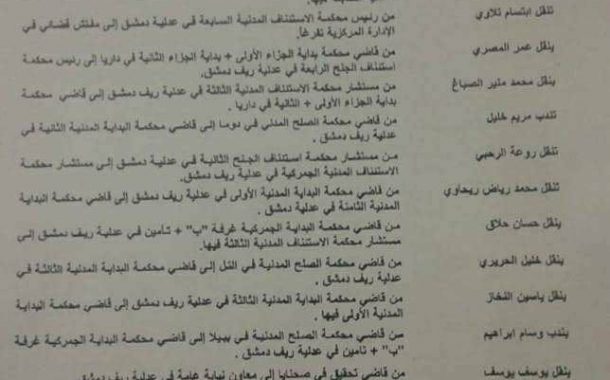 تنقل ابتسام تلاوي من رئيس محكمة الاستئناف المدنية السابعة في عدلية دمشق إلى مفتش قضائي في
الإدارة المركزية تفرغاً.
ينقل عمر المصري من قاضي محكمة بداية الجزاء الأولى + بداية الجزاء الثانية في داريا إلى رئيس محكمة
استئناف الجنح الرابعة في عدلية ريف دمشق.
ينقل محمد منير الصباغ من مستشار محكمة الاستئناف المدنية الثالثة في عدلية ريف دمشق إلى قاضي محكمة
بداية الجزاء الأولى + الثانية في داريا .
تندب مريم خليل من قاضي محكمة الصلح المدني في دوما إلى قاضي محكمة البداية المدنية الثانية في
عدلية ريف دمشق .
تنقل روعة الرحبي من مستشار محكمة استئناف الجنح الثانية في عدلية ريف دمشق إلى مستشار محكمة
الاستئناف المدنية الجمركية في عدلية ريف دمشق.
تنقل محمد رياض ريحاوي من قاضي محكمة البداية المدنية الأولى في عدلية ريف دمشق إلى قاضي محكمة البداية
المدنية الثامنة في عدلية دمشق .
ينقل حسان حلاق من قاضي محكمة البداية الجمركية غرفة "ب" + تأمين في عدلية ريف دمشق إلى
مستشار محكمة الاستئناف المدنية الثالثة فيها.
ينقل خليل الحريري من قاضي محكمة الصلح المدنية في التل إلى قاضي محكمة البداية المدنية الثالثة في
عدلية ريف دمشق .
ينقل ياسين القخاز من قاضي محكمة البداية المدنية الثالثة في عدلية ريف دمشق إلى قاضي محكمة البداية
المدنية الأولى فيها .
يندب وسام ابراهيم من قاضي محكمة الصلح المدنية في ببيلا إلى قاضي محكمة البداية الجمركية غرفة
"ب" + تامين في عدلية ريف دمشق .
ينقل يوسف يوسف من قاضي تحقيق في صحنايا إلى معاون نيابة عامة في عدلية ريف دمشق